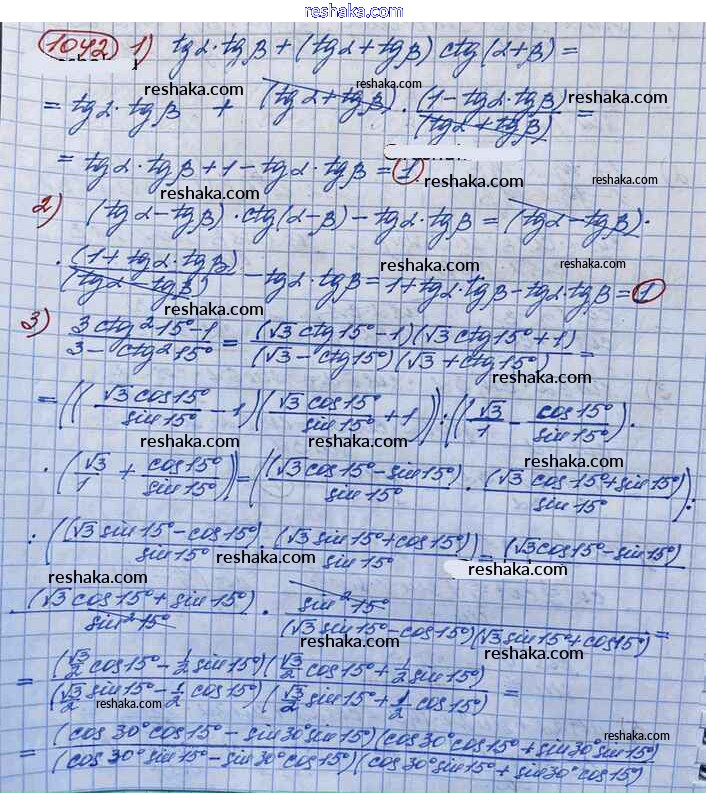 reshaka.com
1042) 1) tgα·tgβ + (tgα + tgβ) ctg(α+β) =
reshaka.com reshaka.com
= tgα·tgβ + (tgα + tgβ) · (1 - tgα·tgβ)/(tgα + tgβ) =
= tgα·tgβ + 1 - tgα·tgβ = 1
reshaka.com reshaka.com
2) (tgα - tgβ)·ctg(α-β) - tgα·tgβ = (tgα - tgβ)·
reshaka.com
· (1 + tgα·tgβ)/(tgα - tgβ) - tgα·tgβ = 1 + tgα·tgβ - tgα·tgβ = 1
reshaka.com reshaka.com
3) (3ctg²15° - 1)/(3 - ctg²15°) = (√3 ctg15° - 1)(√3 ctg15° + 1)/(√3 - ctg15°)(√3 + ctg15°) =
reshaka.com
= ((√3 cos15°/sin15° - 1)(√3 cos15°/sin15° + 1)) : ((√3/1 - cos15°/sin15°)·
reshaka.com reshaka.com
· (√3/1 + cos15°/sin15°)) = ((√3 cos15° - sin15°)/sin15° · (√3 cos15° + sin15°)/sin15°) :
reshaka.com
: ((√3 sin15° - cos15°)/sin15° · (√3 sin15° + cos15°)/sin15°) = (√3 cos15° - sin15°)
reshaka.com reshaka.com
reshaka.com
(√3 cos15° + sin15°)/sin²15° · sin²15°/(√3 sin15° - cos15°)(√3 sin15° + cos15°) =
reshaka.com reshaka.com
= (√3/2 cos15° - 1/2 sin15°)(√3/2 cos15° + 1/2 sin15°)/(√3/2 sin15° - 1/2 cos15°)(√3/2 sin15° + 1/2 cos15°) =
reshaka.com
= (cos30°cos15° - sin30°sin15°)(cos30°cos15° + sin30°sin15°)/(cos30°sin15° - sin30°cos15°)(cos30°sin15° + sin30°cos15°)
reshaka.com reshaka.com